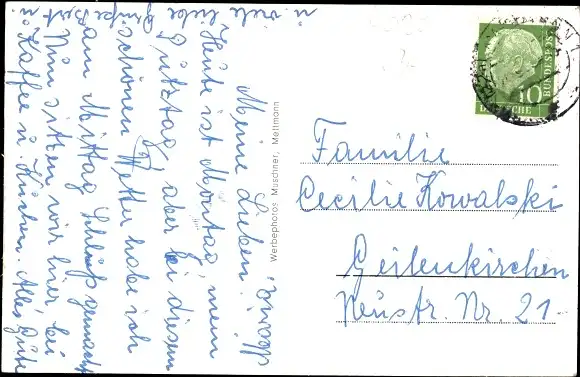 Meine Lieben!
Heute ist Montag, mein
Putztag, aber bei diesem
schönen Wetter habe ich
am Mittag Schluß gemacht
Nun sitzen wir hier bei
Kaffee u. Kuchen. Alles Gute
u. viele liebe Grüße Bert u.
Werbephotos Muschner, Mettmann
10
DEUTSCHE BUNDESPOST
Familie
Cecilie Kowalski
Geilenkirchen
Neustr. Nr. 21